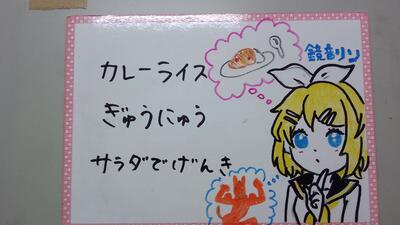 カレーライス
鏡音リン
ぎゅうにゅう
サラダでげんき